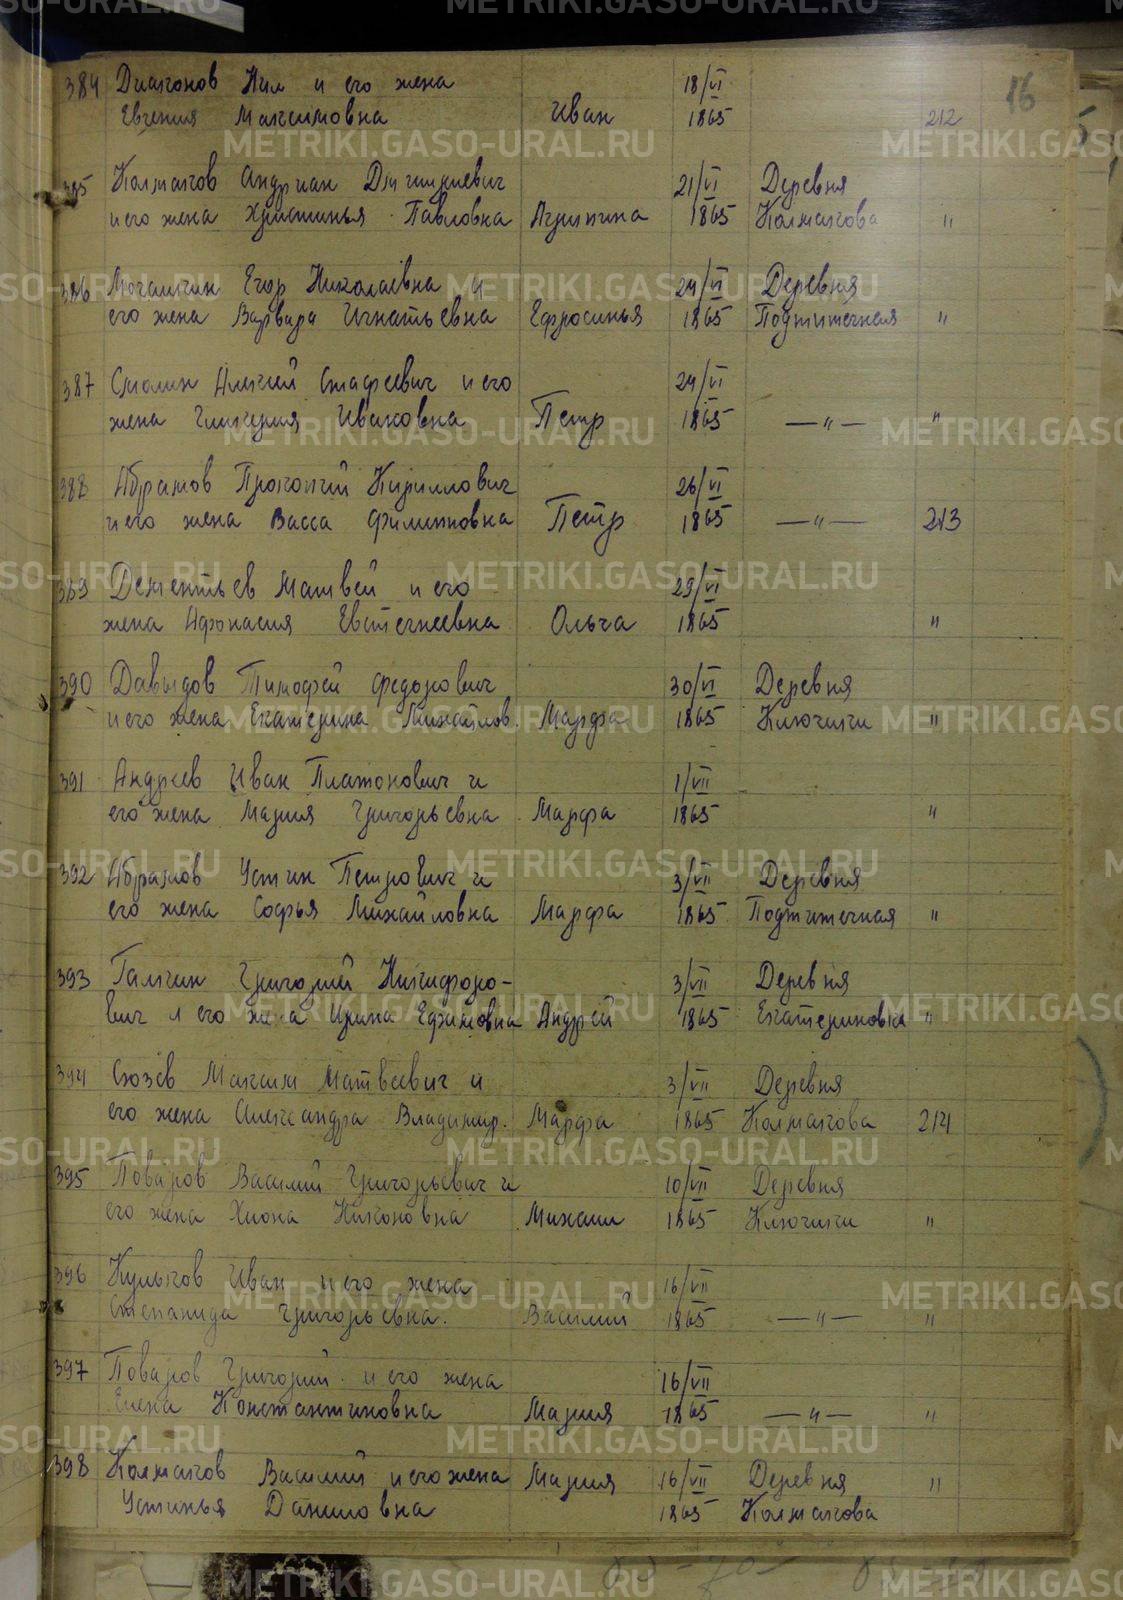 16
384 Диаконов Нил и его жена 18/VI
Евгения Максимовна Иван 1865 212
385 Колмаков Андриан Дмитриевич 21/VI Деревня
и его жена Христинья Павловна Агрипина 1865 Колмакова "
386 Мочалкин Егор Николаевна и 24/VI Деревня
его жена Варвара Игнатьевна Ефросинья 1865 Подпитечная "
387 Смолин Алексей Стафеевич и его 24/VI
жена Гликерия Ивановна Петр 1865 —"— "
388 Абрамов Прокопий Кириллович 26/VI
и его жена Васса Филипповна Петр 1865 —"— 213
389 Дементьев Матвей и его 29/VI
жена Афонасия Евстегнеевна Ольга 1865 "
390 Давыдов Тимофей Федорович 30/VI Деревня
и его жена Екатерина Михайлов. Марфа 1865 Ключики "
391 Андреев Иван Платонович и 1/VII
его жена Мария Григорьевна Марфа 1865 "
392 Абрамов Устин Петрович и 3/VII Деревня
его жена Софья Михайловна Марфа 1865 Подпитечная "
393 Галкин Григорий Никифоро- 3/VII Деревня
вич и его же а Ирина Ефимовна Андрей 1865 Екатериновка "
394 Сюзев Максим Матвеевич и 3/VII Деревня
его жена Александра Владимир. Марфа 1865 Колмакова 214
395 Поваров Василий Григорьевич и 10/VII Деревня
его жена Хиона Никоновна Михаил 1865 Ключики "
396 Кульков Иван и его жена 16/VII
Степанида Григорьевна. Василий 1865 —"— "
397 Поваров Григорий и его жена 16/VII
Елена Константиновна Мария 1865 —"— "
398 Колмаков Василий и его жена Мария 16/VII Деревня "
Устинья Даниловна 1865 Колмакова